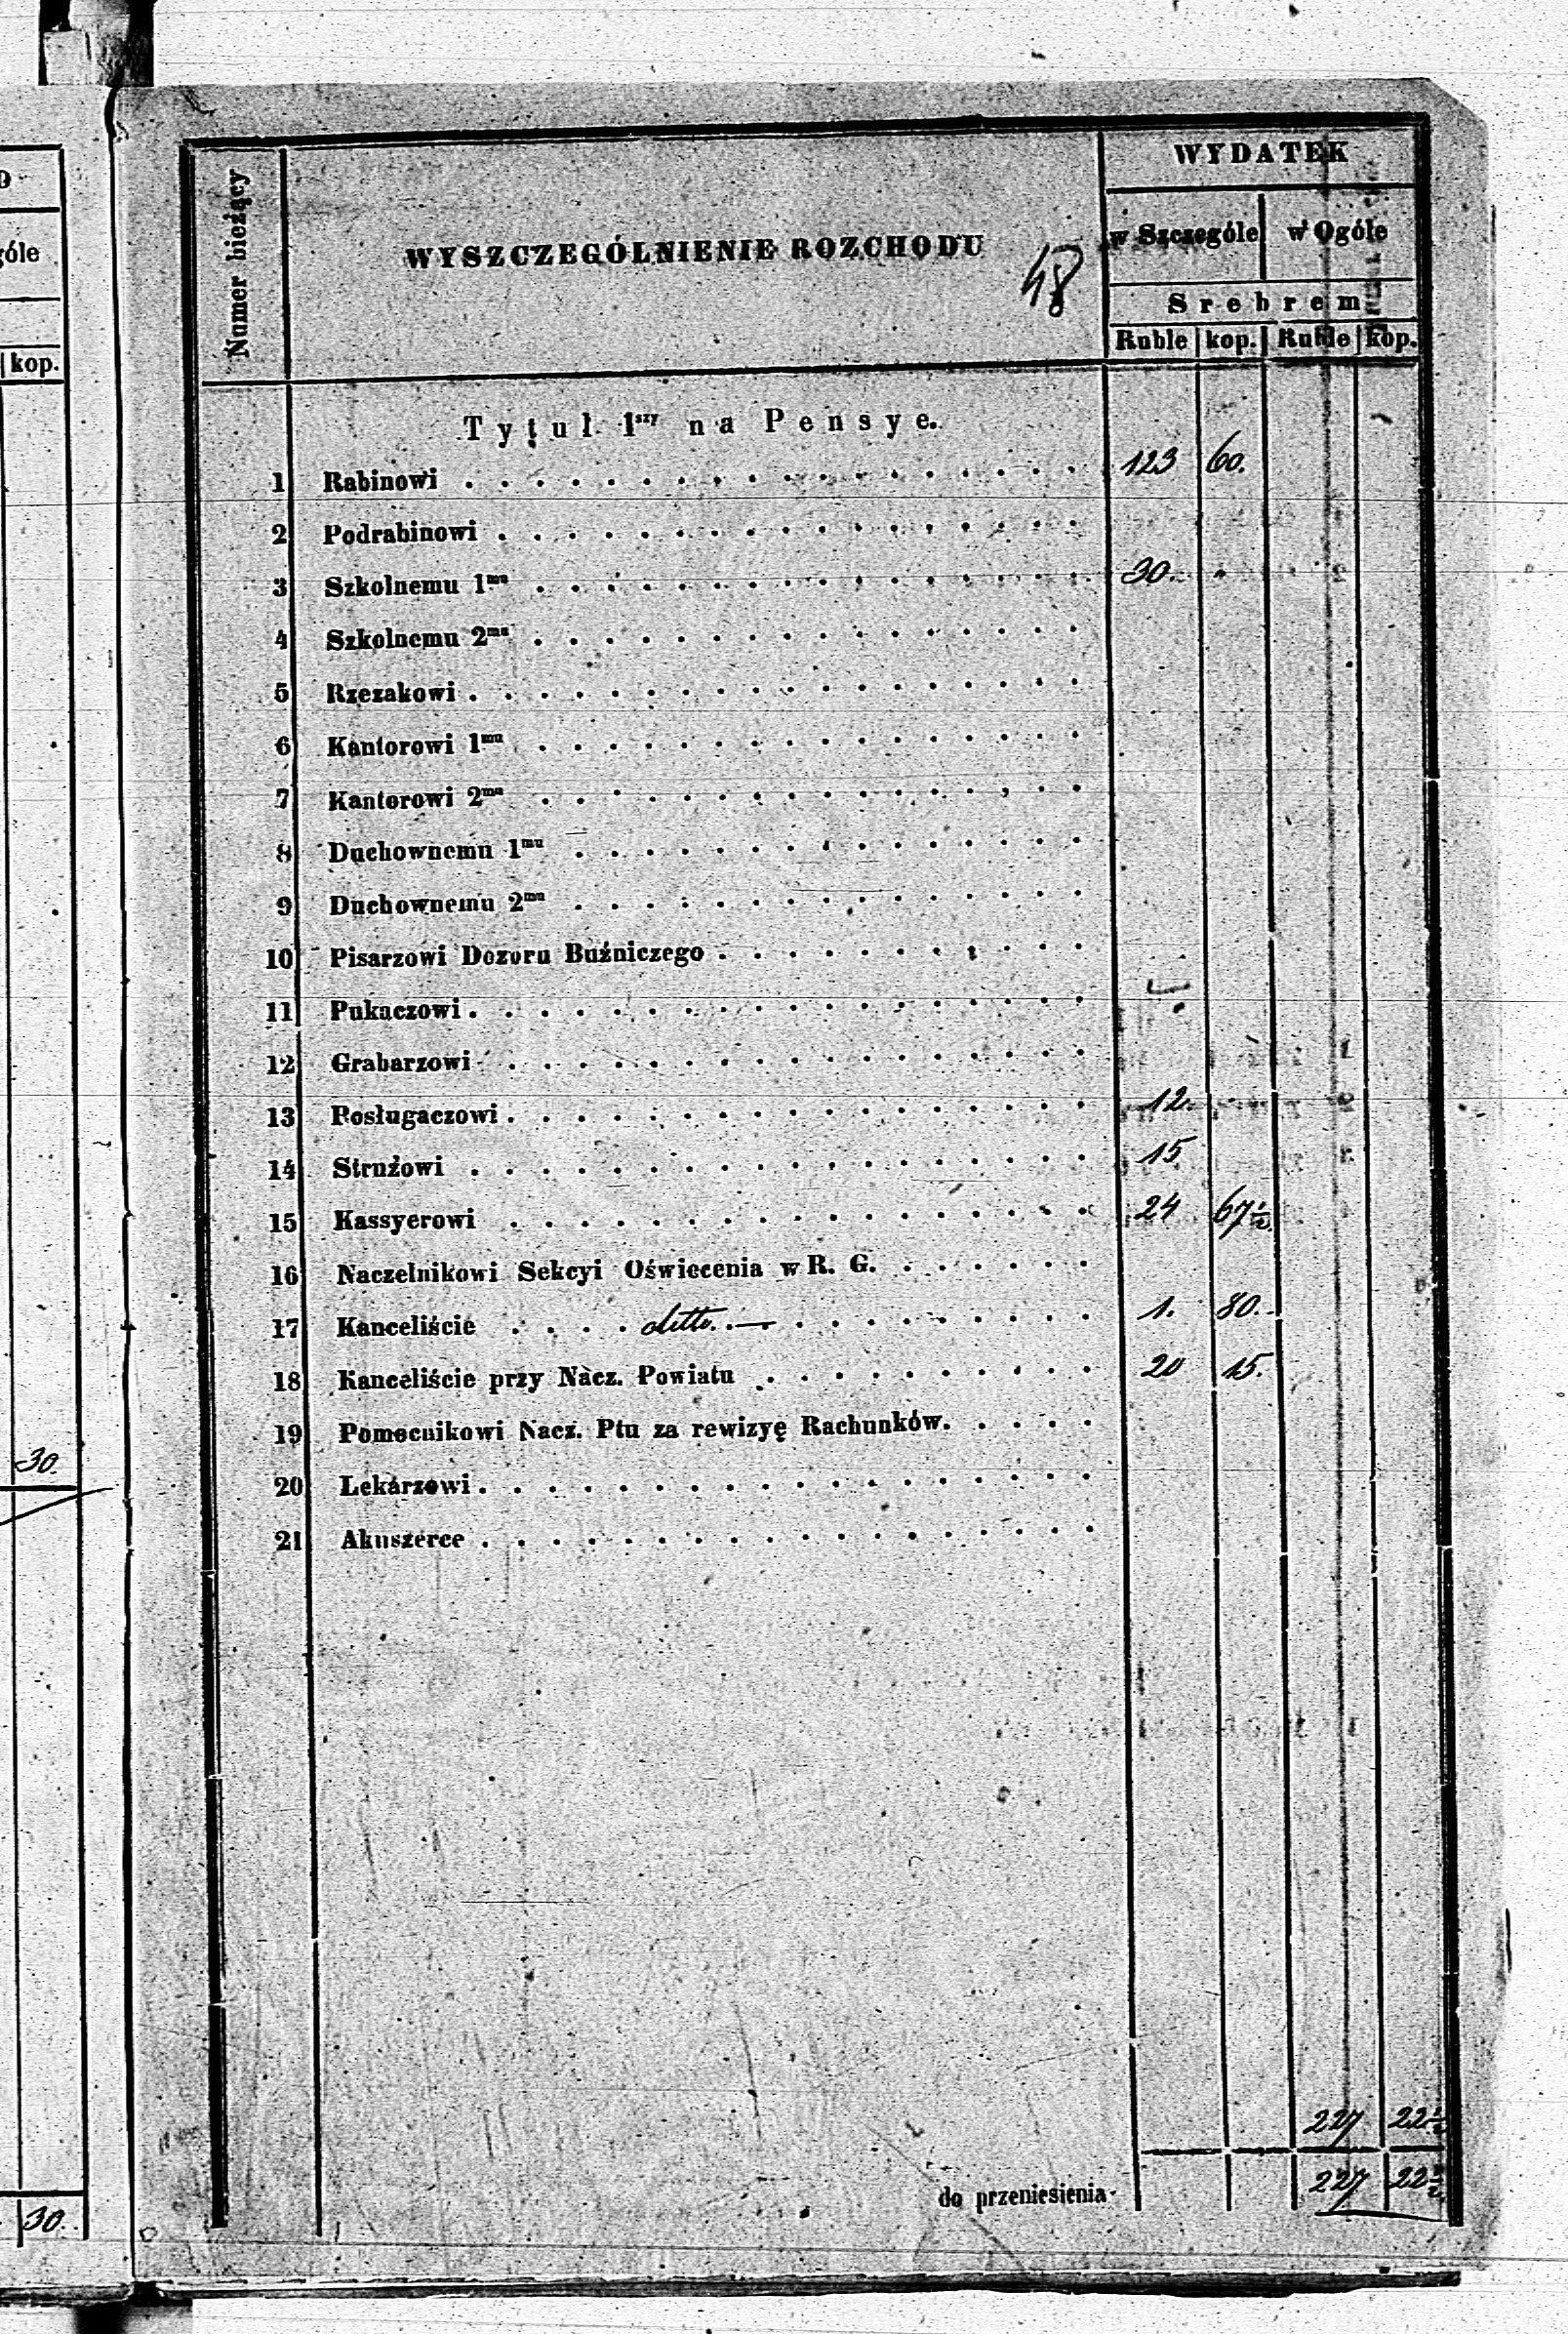 góle
kop.
30.
30.
Numer bieżący
WYSZCZEGÓLNIENIE ROZCHODU
48
WYDATEK
w Szczególe w Ogóle
Srebrem
Ruble kop. Ruble kop.
Tytuł 1szy na Pensye.
1 Rabinowi 123 60.
2 Podrabinowi
3 Szkolnemu 1mu 30. "
4 Szkolnemu 2mu
5 Rzezakowi
6 Kantorowi 1mu
7 Kantorowi 2mu
8 Duchownemu 1mu
9 Duchownemu 2mu
10 Pisarzowi Dozoru Buźniczego
11 Pukaczowi
12 Grabarzowi
13 Posługaczowi 12.
14 Strużowi 15
15 Kassyerowi 24 67½
16 Naczelnikowi Sekcyi Oświecenia w R. G.
17 Kanceliście ditto. — 1. 80.
18 Kanceliście przy Nacz. Powiatu 20 15.
19 Pomocnikowi Nacz. Ptu za rewizyę Rachunków.
20 Lekarzowi
21 Akuszerce
227 22½
do przeniesienia 227 22½